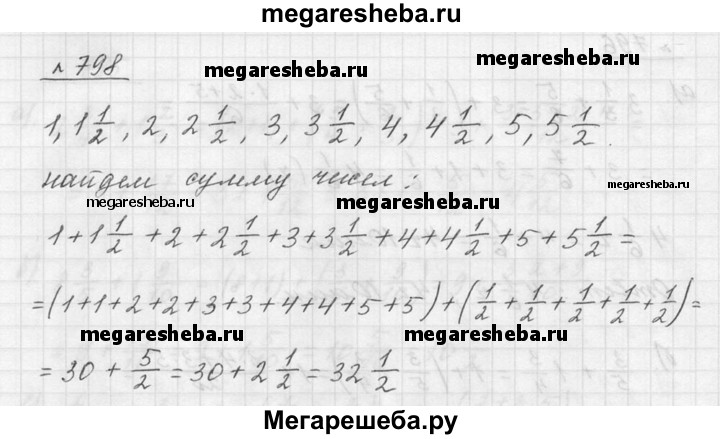 megaresheba.ru
№ 798
megaresheba.ru
1, 1 1/2, 2, 2 1/2, 3, 3 1/2, 4, 4 1/2, 5, 5 1/2.
найдем сумму чисел:
megaresheba.ru
megaresheba.ru
megaresheba.ru
1+1 1/2+2+2 1/2+3+3 1/2+4+4 1/2+5+5 1/2=
=(1+1+2+2+3+3+4+4+5+5)+(1/2+1/2+1/2+1/2+1/2)=
megaresheba.ru
megaresheba.ru
=30+5/2=30+2 1/2=32 1/2
Мегарешеба.ру